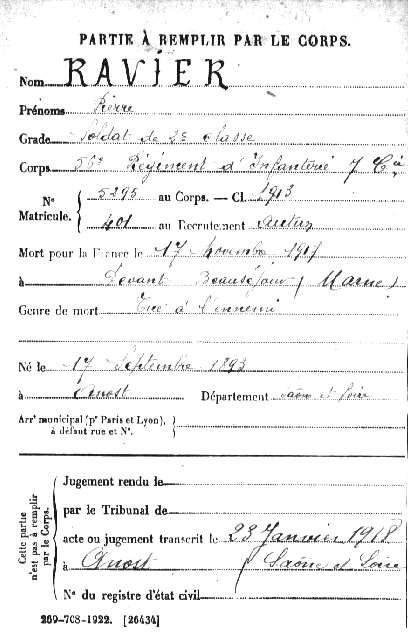 PARTIE À REMPLIR PAR LE CORPS.
Nom RAVIER
Prénoms Pierre
Grade Soldat de 2e classe
Corps 56e Régiment d'Infanterie 7 Cie
N° Matricule. { 5295 au Corps. — Cl. 1913
401 au Recrutement Autun
Mort pour la France le 17 Novembre 1917
à Devant Beauséjour (Marne)
Genre de mort Tué à l'ennemi
Né le 17 Septembre 1893
à Anost Département Saône et Loire
Arrt municipal (pr Paris et Lyon),
à défaut rue et N°.
Cette partie n'est pas à remplir par le Corps.
Jugement rendu le
par le Tribunal de
acte ou jugement transcrit le 23 Janvier 1918
à Anost (Saône et Loire
N° du registre d'état civil
269-708-1922. [26434]